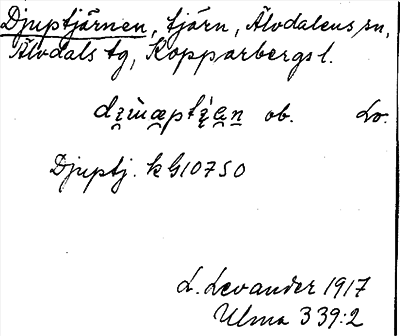 Djuptjärnen, tjärn, Älvdalens sn,
Älvdals tg, Kopparbergs l.
ob. Lo.
Djuptj. k G10750
L. Levander 1917
Ulma 339:2